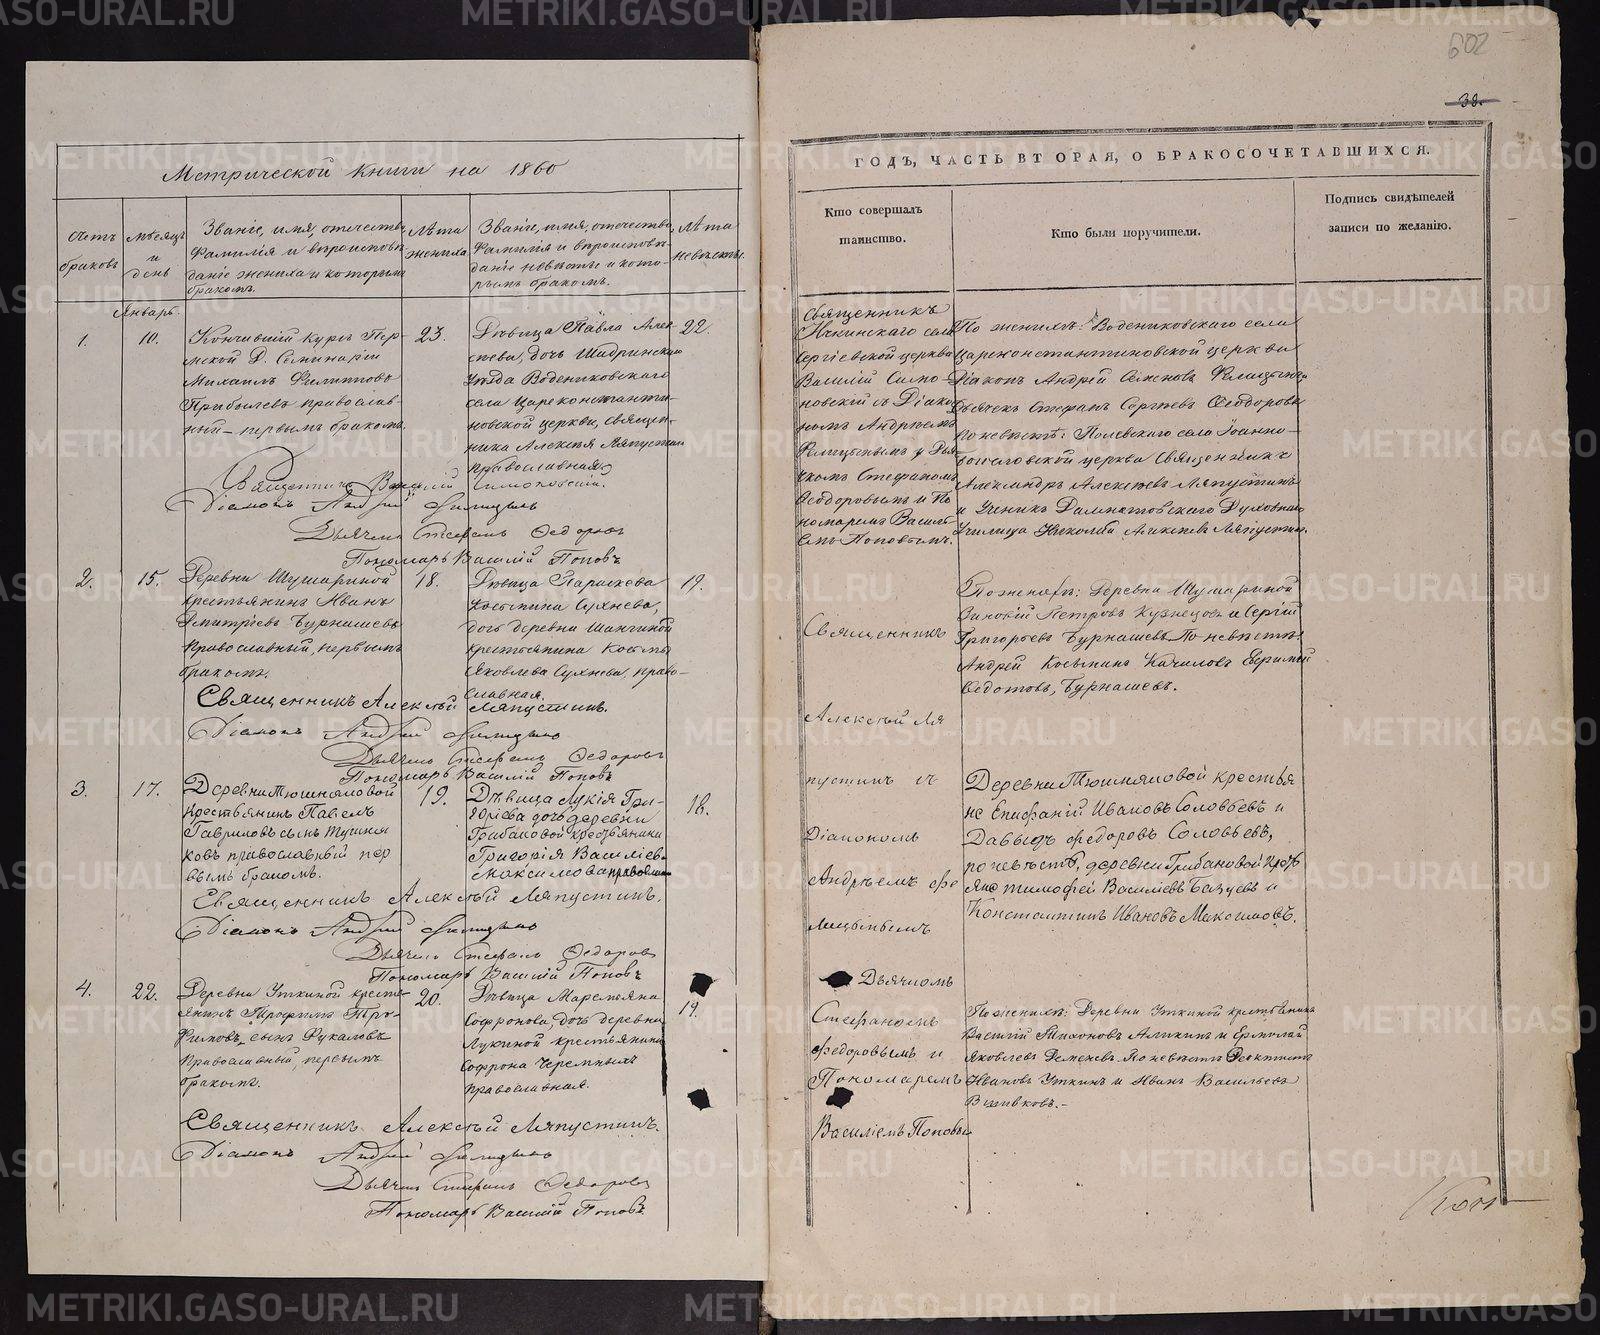 METRIKI.GASO-URAL.RU
602
38.
Метрической книги на 1860
ГОДЪ, ЧАСТЬ ВТОРАЯ, О БРАКОСОЧЕТАВШИХСЯ.
Счетъ браковъ
Мѣсяцъ и день
Званіе, имя, отчество
фамилія и вѣроисповѣ-
даніе жениха и которымъ
бракомъ.
Лѣта
жениха
Званіе, имя, отчество
фамилія и вѣроисповѣ-
даніе невѣсты и кото-
рымъ бракомъ.
Лѣта
невѣсты.
Кто совершалъ
таинство.
Кто были поручители.
Подпись свидѣтелей
записи по желанію.
Январь.
1.
10.
Кончившій курсъ Пер-
мской Д. Семинаріи
Михаилъ Филипповъ
Прибылевъ православ-
ный – первымъ бракомъ.
23.
Дѣвица Павла Алек-
сѣева, дочь Шадринскаго
уѣзда Водениковскаго
села Цареконстанти-
новской церкви, священ-
ника Алексѣя Ляпустина
православная
22.
Священникъ
Ичкинскаго села
Сергіевской церкви
Василій Симо-
новскій съ Діако-
номъ Андреемъ
Филицынымъ и Дья-
чкомъ Стефаномъ
Ѳеодоровымъ и По-
номаремъ Василі-
емъ Поповымъ.
По женихѣ: Водениковскаго села
Цареконстантиновской церкви
Діаконъ Андрей Семеновъ Филицынъ
Дьячекъ Стефанъ Сергѣевъ Ѳеодоровъ
По невѣстѣ: Полевскаго села Іоанно-
богословской церкви Священникъ
Александръ Алексѣевъ Ляпустинъ
и Ученикъ Далматовскаго Духовнаго
Училища Николай Алексѣевъ Ляпустинъ.
Священникъ Василій Симоновскій.
Діаконъ Андрей Филицынъ
Дьячекъ Стефанъ Ѳедоровъ
Пономарь Василій Поповъ
2.
15.
Деревни Шушариной
крестьянинъ Иванъ
Дмитріевъ Бурнашевъ
православный, первымъ
бракомъ.
18.
Дѣвица Параскева
Косьмина Сухнева,
дочь деревни
крестьянина Косьмы
Яковлева Сухнева, право-
славная.
19.
Священникъ
По женихѣ: Деревни Шушариной
Зиновій Петровъ Кузнецовъ и Сергій
Григорьевъ Бурнашевъ. По невѣстѣ:
Андрей Косьминъ Качаловъ Евфимій
Ѳедотовъ, Бурнашевъ.
Священникъ Алексѣй Ляпустинъ.
Діаконъ Андрей Филицынъ
Дьячекъ Стефанъ Ѳедоровъ
Пономарь Василій Поповъ
Алексѣй Ля
пустинъ съ
Діакономъ
Андреемъ Фи
лицынымъ
Дьячкомъ
Стефаномъ
Ѳедоровымъ и
Пономаремъ
Василіемъ Поповы
3.
17.
Деревни Тюшняковой
крестьянинъ Павелъ
Гавриловъ сынъ Тушна
ковъ православный пер
вымъ бракомъ.
19.
Дѣвица Лукія Гри-
горіева дочь деревни
Грибановой крестьянина
Григорія Василіева
Максимова православная
18.
Деревни Тюшняковой крестья
не Епифаній Ивановъ Соловьевъ и
Давыдъ Ѳедоровъ Соловьевъ,
по невѣстѣ, деревни Грибановой крестья
не Тимофей Василіевъ и
Константинъ Ивановъ Максимовъ.
Священникъ Алексѣй Ляпустинъ.
Діаконъ Андрей Филицынъ
Дьячекъ Стефанъ Ѳедоровъ
Пономарь Василій Поповъ
4.
22.
Деревни Уткиной кресть-
янинъ Трофимъ Тро-
фимовъ, сынъ Фукаловъ
православный, первымъ
бракомъ.
20.
Дѣвица Маремьяна
Софронова, дочь деревни
Лукиной крестьянина
Софрона Черемныхъ
православная.
19.
По женихѣ: Деревни Уткиной крестьянинъ
Василій Тихоновъ Аликинъ и Ермолай
Яковлевъ Деменевъ. По невѣстѣ Ѳеоктистъ
Ивановъ Уткинъ и Иванъ Васильевъ
Вшивковъ.–
Священникъ Алексѣй Ляпустинъ.
Діаконъ Андрей Филицынъ
Дьячекъ Стефанъ Ѳедоровъ
Пономарь Василій Поповъ